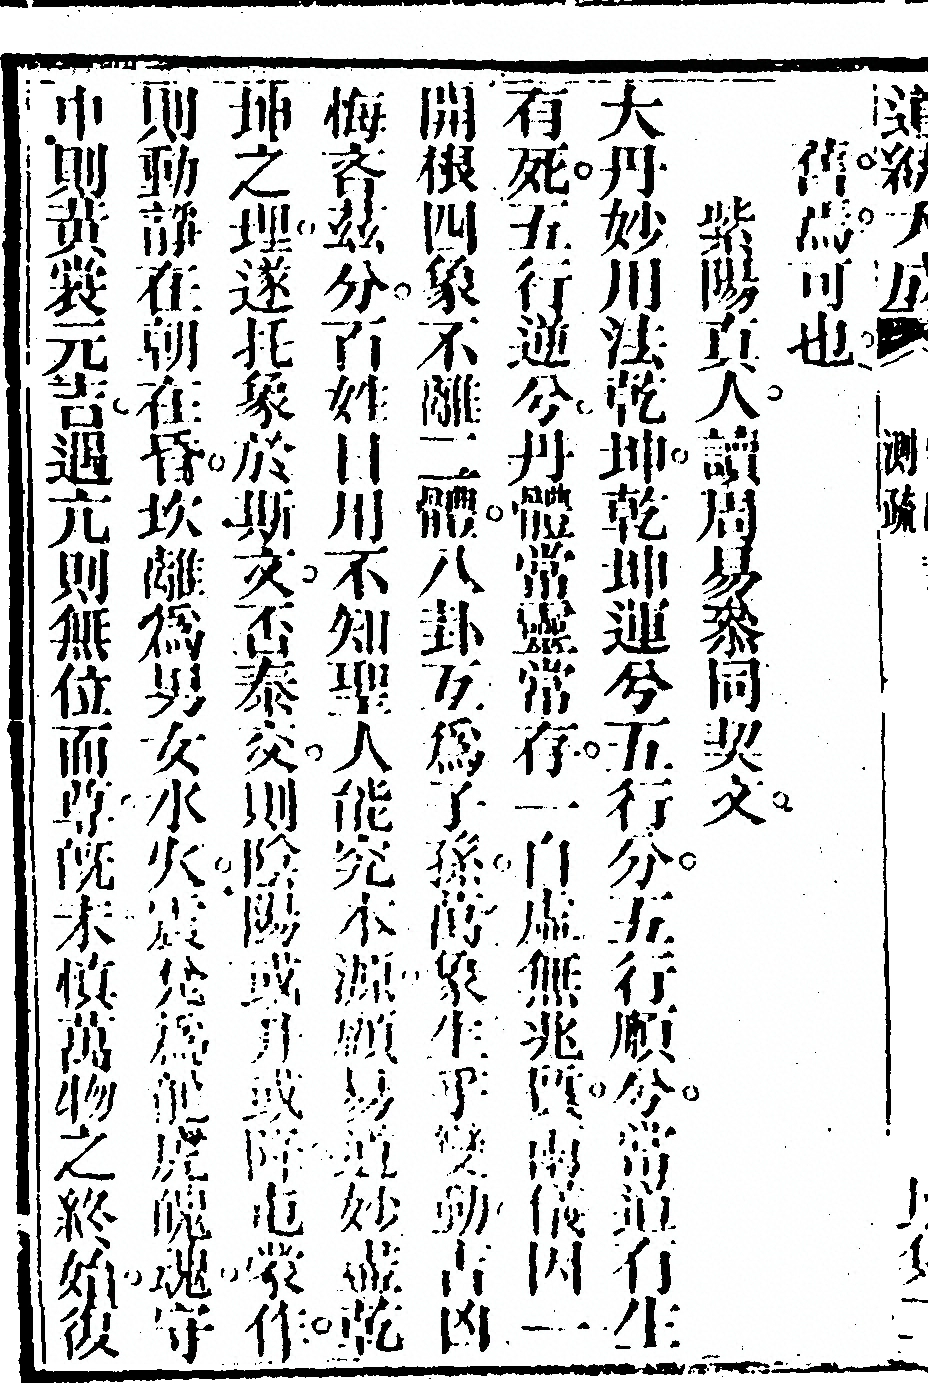 舊爲可也
紫陽真人讀周易叅同契文
大丹妙用法乾坤乾坤運兮五行分五行順兮常道有生
有死五行逆兮丹體常靈常存一自虛無兆質兩儀因一
開根四象不離二體八卦互爲子孫萬象生乎變動吉凶
悔吝兹分百姓日用不知聖人能究本源顧易道妙盡乾
坤之理遂托象於斯文否泰交則陰陽或升或降屯蒙作
則動靜在朝在昏坎離爲男女水火震兌爲龍虎魄魂守
中則黃裳元吉遇亢則無位而尊旣未慎萬物之終始復
測疏